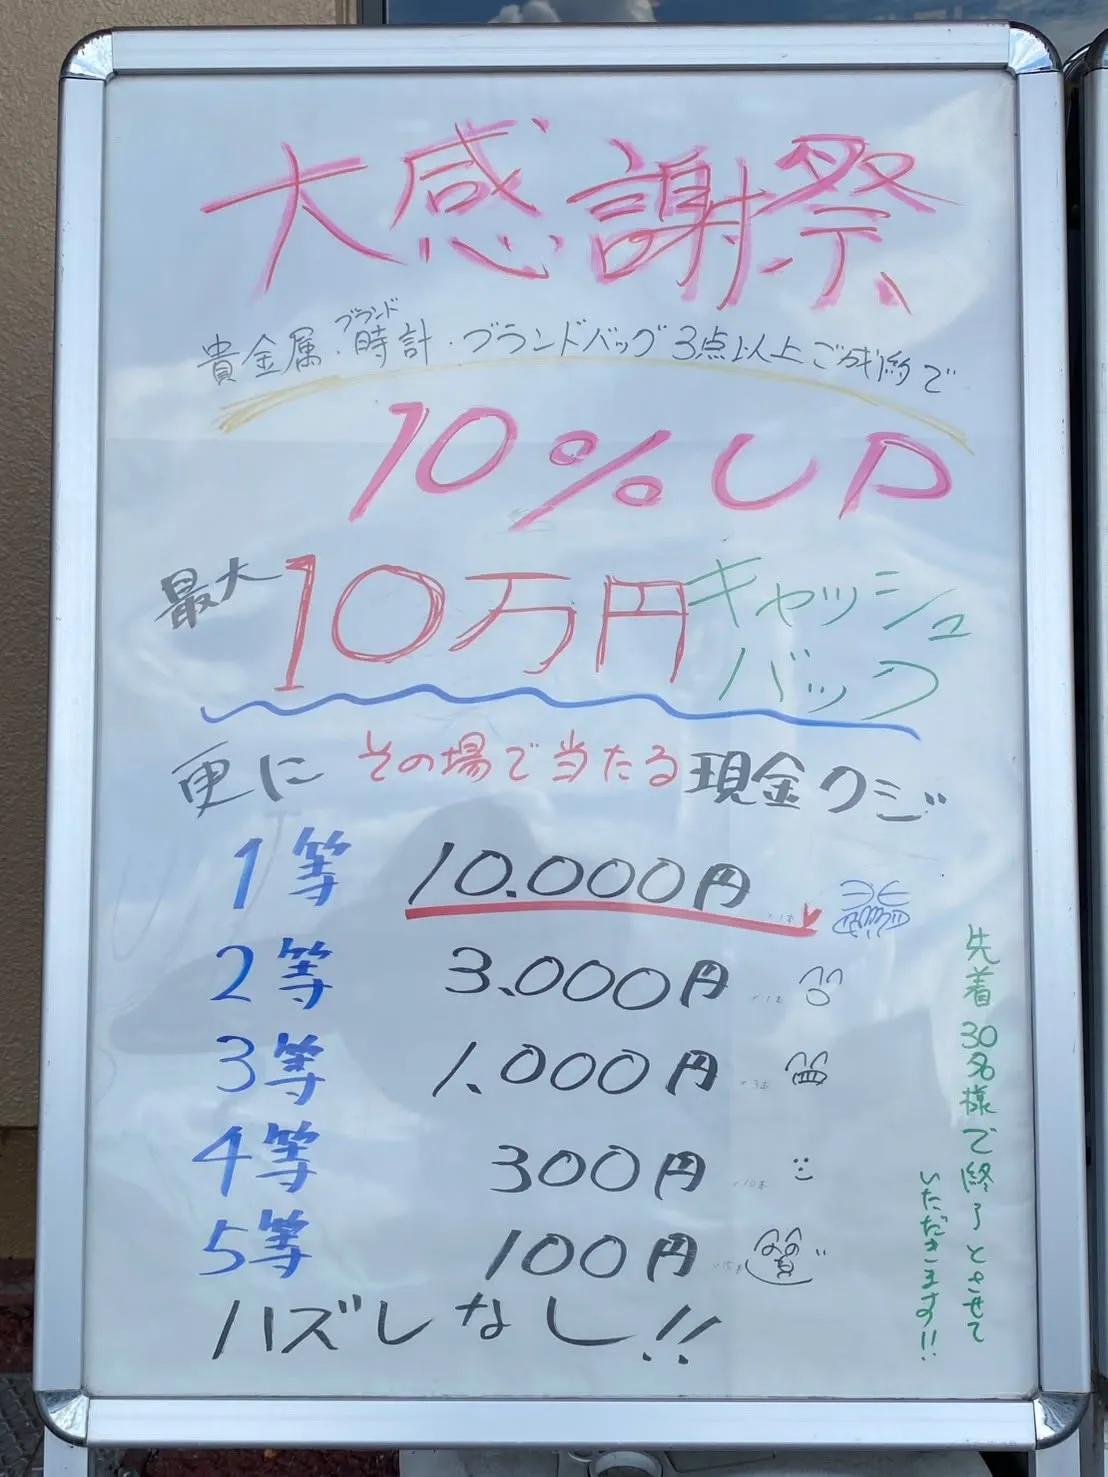 大感謝祭
貴金属・ブランド時計・ブランドバッグ3点以上ご成約で
10%UP
最大10万円キャッシュ
バック
更にその場で当たる現金クジ
1等 10.000円 ×1本
2等 3.000円 ×1本
3等 1.000円 ×3本
4等 300円 ×10本
5等 100円 ×15本
ハズレなし!!
先着30名様で終了とさせて
いただきます!!